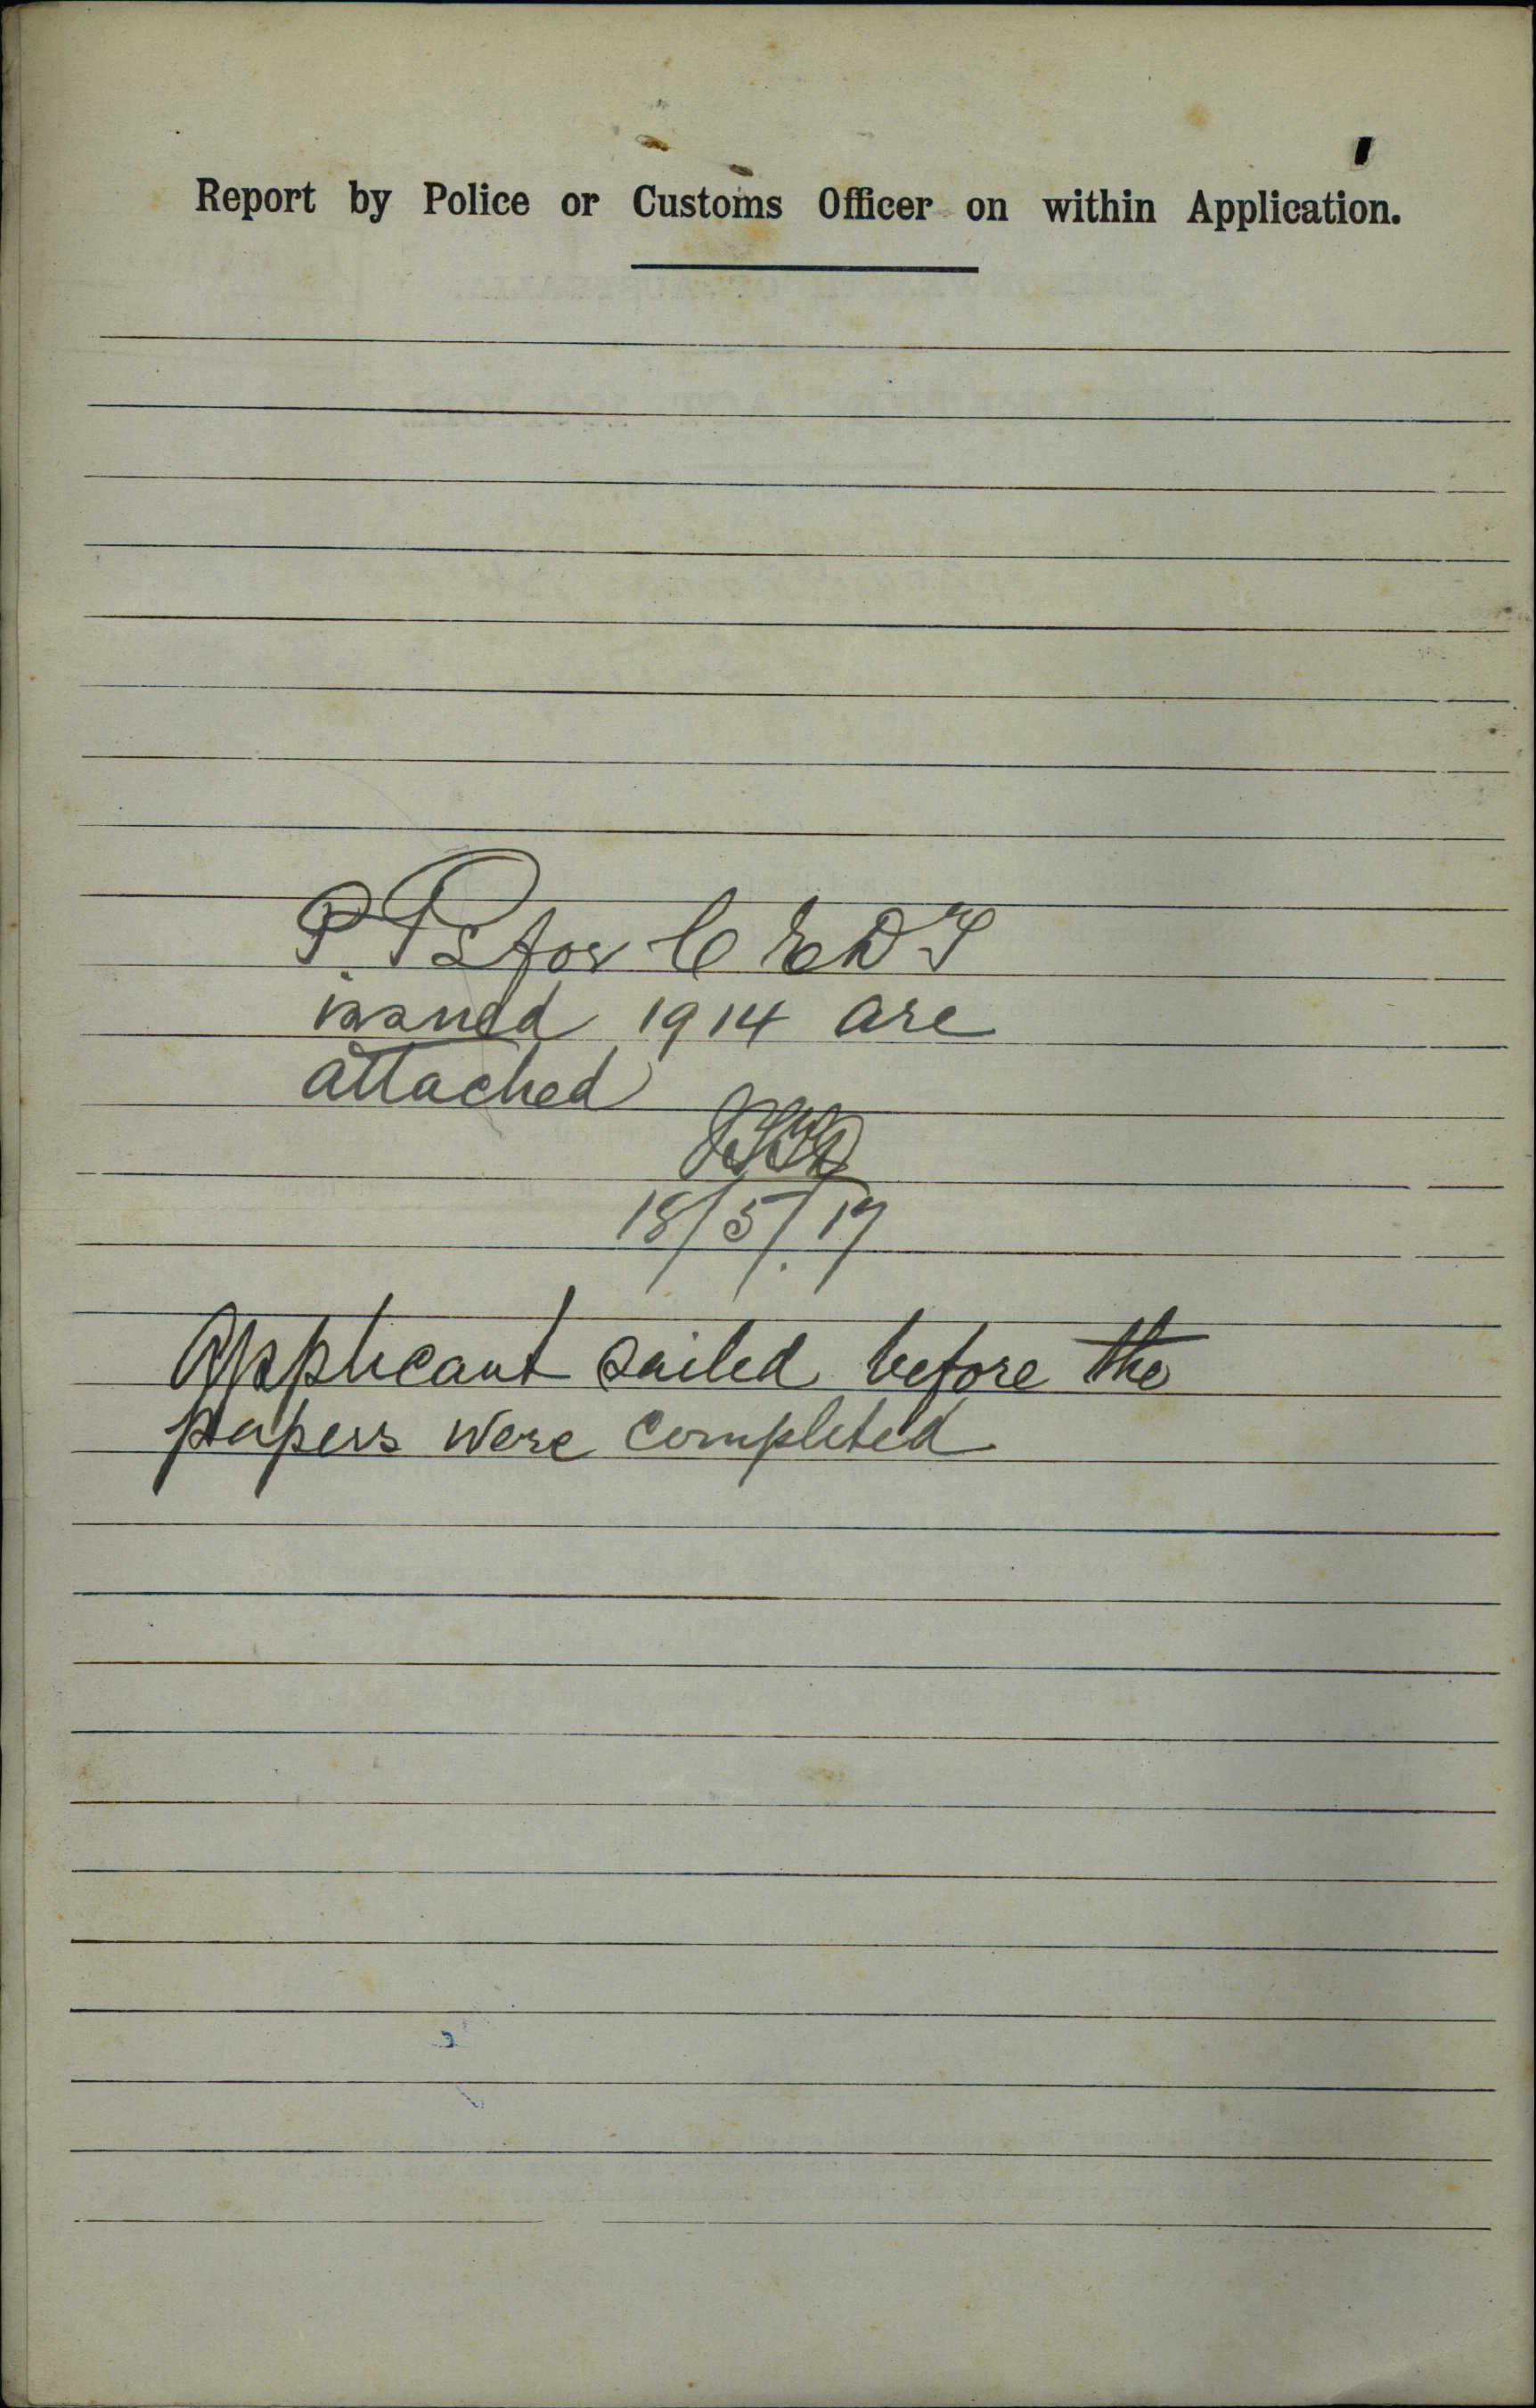 Report by Police or Customs Officer on within Application.
P.Ps for C E D T
issued 1914 are
attached
18/5/17
Applicant sailed before the
papers were completed